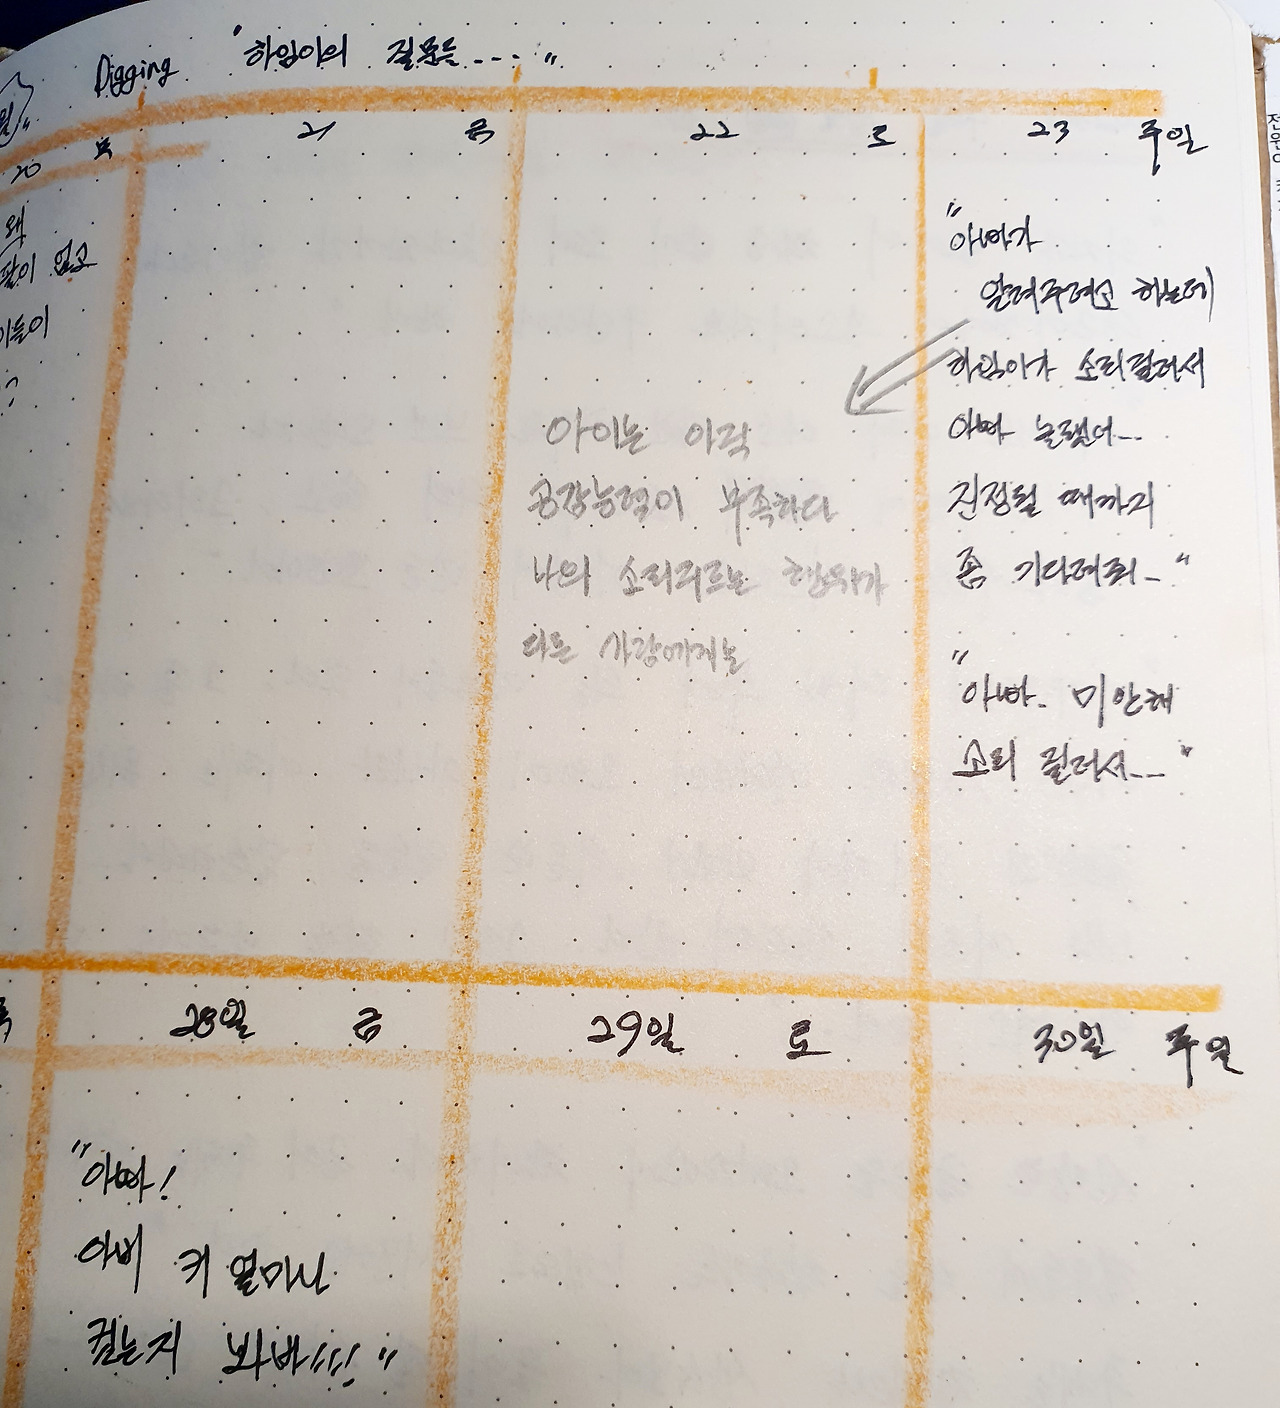 Digging "하임이의 질문들...."
20 목
21 금
22 토
23 주일
왜
팔이 없고
이들이
"아빠가
알려주려고 하는데
하임이가 소리질러서
아빠 놀랬어...
진정될 때까지
좀 기다려줘.."
"아빠. 미안해
소리 질러서...."
아이는 아직
공감능력이 부족하다
나의 소리지르는 행위가
다른 사람에게는
28일 금
29일 토
30일 주일
"아빠!
아버 키 얼마나
컸는지 봐바!!!!"